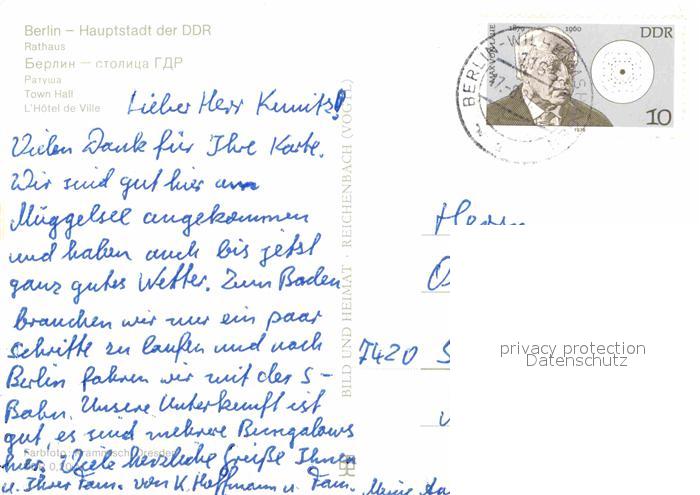 Berlin – Hauptstadt der DDR
Rathaus
Берлин – столица ГДР
Ратуша
Town Hall
L'Hôtel de Ville
Lieber Herr Kunitz!
Vielen Dank für Ihre Karte.
Wir sind gut hier am
Müggelsee angekommen
und haben auch bis jetzt
ganz gutes Wetter. Zum Baden
brauchen wir nur ein paar
Schritte zu laufen und nach
Berlin fahren wir mit der S-
Bahn. Unsere Unterkunft ist
gut, es sind mehrere Bungalows
hier. Viele herzliche Grüße Ihnen
u. Ihrer Fam. von K. Hoffmann u. Fam.
BILD UND HEIMAT · REICHENBACH (VOGTL)
MAX VON LAUE
1879 1960
DDR
10
1979
BERLIN-WILHELMSHAGEN
Herrn
7420 S
privacy protection
Datenschutz